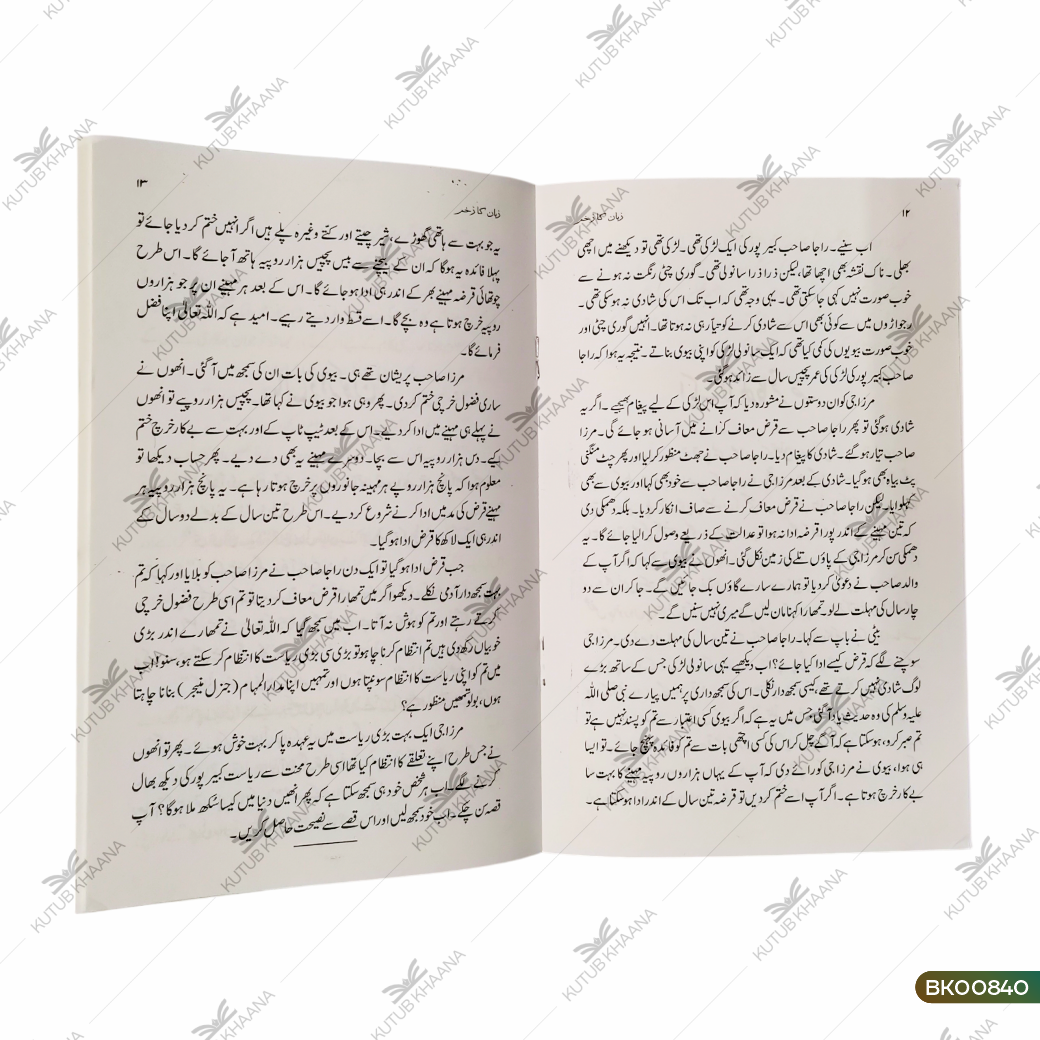 ۱۲
زبان کا زخم
اب سنیے۔ راجا صاحب کبیر پور کی ایک لڑکی تھی۔ لڑکی تھی تو دیکھنے میں اچھی
بھلی۔ ناک نقشہ بھی اچھا تھا، لیکن ذرا ذرا سانولی تھی۔ گوری چٹی رنگت نہ ہونے سے
خوب صورت نہیں کہی جا سکتی تھی۔ یہی وجہ تھی کہ اب تک اس کی شادی نہ ہو سکی تھی۔
رجواڑوں میں سے کوئی بھی اس سے شادی کرنے کو تیار ہی نہ ہوتا تھا۔ انہیں گوری چٹی اور
خوب صورت بیویوں کی کمی کیا تھی کہ ایک سانولی لڑکی کو اپنی بیوی بناتے۔ نتیجہ یہ ہوا کہ راجا
صاحب کبیر پور کی لڑکی کی عمر پچیس سال سے زائد ہو گئی۔
مرزا جی کو ان دوستوں نے مشورہ دیا کہ آپ اس لڑکی کے لیے پیغام بھیجیے۔ اگر یہ
شادی ہو گئی تو پھر راجا صاحب سے قرض معاف کرانے میں آسانی ہو جائے گی۔ مرزا
صاحب تیار ہو گئے۔ شادی کا پیغام دیا۔ راجا صاحب نے جھٹ منظور کر لیا اور پھر چٹ منگنی
پٹ بیاہ بھی ہو گیا۔ شادی کے بعد مرزا جی نے راجا صاحب سے خود بھی کہا اور بیوی سے بھی
کہلوایا۔ لیکن راجا صاحب نے قرض معاف کرنے سے صاف انکار کر دیا۔ بلکہ دھمکی دی
کہ تین مہینے کے اندر پورا قرضہ ادا نہ ہوا تو عدالت کے ذریعے وصول کرا لیا جائے گا۔ یہ
دھمکی سن کر مرزا جی کے پاؤں تلے کی زمین نکل گئی۔ انھوں نے بیوی سے کہا کہ اگر آپ کے
والد صاحب نے دعویٰ کر دیا تو ہمارے سارے گاؤں بک جائیں گے۔ جا کر ان سے دو
چار سال کی مہلت لے لو۔ تمھارا کہنا مان لیں گے میری نہیں سنیں گے۔
بیٹی نے باپ سے کہا۔ راجا صاحب نے تین سال کی مہلت دے دی۔ مرزا جی
سوچنے لگے کہ قرض کیسے ادا کیا جائے؟ اب دیکھیے یہی سانولی لڑکی جس کے ساتھ بڑے
لوگ شادی نہیں کرتے تھے، کیسی سمجھ دار نکلی۔ اس کی سمجھ داری پر ہمیں پیارے نبی صلی اللہ
علیہ وسلم کی وہ حدیث یاد آ گئی جس میں یہ ہے کہ اگر بیوی کسی اعتبار سے تم کو پسند نہیں ہے تو
تم صبر کرو، ہو سکتا ہے کہ آگے چل کر اس کی کسی اچھی بات سے تم کو فائدہ پہنچ جائے۔ تو ایسا
ہی ہوا، بیوی نے مرزا جی کو رائے دی کہ آپ کے یہاں ہزاروں روپیہ مہینے کا بہت سا
بے کار خرچ ہوتا ہے۔ اگر آپ اسے ختم کر دیں تو قرضہ تین سال کے اندر ادا ہو سکتا ہے۔
زبان کا زخم
۱۳
یہ جو بہت سے ہاتھی گھوڑے، شیر چیتے اور کتے وغیرہ پلے ہیں اگر انہیں ختم کر دیا جائے تو
پہلا فائدہ یہ ہوگا کہ ان کے بیچنے سے بیس پچیس ہزار روپیہ ہاتھ آ جائے گا۔ اس طرح
چوتھائی قرضہ مہینے بھر کے اندر ہی ادا ہو جائے گا۔ اس کے بعد ہر مہینے ان پر جو ہزاروں
روپیہ خرچ ہوتا ہے وہ بچے گا۔ اسے قسط وار دیتے رہیے۔ امید ہے کہ اللہ تعالیٰ اپنا فضل
فرمائے گا۔
مرزا صاحب پریشان تھے ہی۔ بیوی کی بات ان کی سمجھ میں آ گئی۔ انھوں نے
ساری فضول خرچی ختم کر دی۔ پھر وہی ہوا جو بیوی نے کہا تھا۔ پچیس ہزار روپے تو انھوں
نے پہلے ہی مہینے میں ادا کر دیے۔ اس کے بعد ٹیپ ٹاپ کے اور بہت سے بے کار خرچ ختم
کیے۔ دس ہزار روپیہ اس سے بچا۔ دوسرے مہینے یہ بھی دے دیے۔ پھر حساب دیکھا تو
معلوم ہوا کہ پانچ ہزار روپے ہر مہینہ جانوروں پر خرچ ہوتا رہا ہے۔ یہ پانچ ہزار روپیہ ہر
مہینے قرض کی مد میں ادا کرنے شروع کر دیے۔ اس طرح تین سال کے بدلے دو سال کے
اندر ہی ایک لاکھ کا قرض ادا ہو گیا۔
جب قرض ادا ہو گیا تو ایک دن راجا صاحب نے مرزا صاحب کو بلایا اور کہا کہ تم
بہت سمجھ دار آدمی نکلے۔ دیکھو اگر میں تمھارا قرض معاف کر دیتا تو تم اسی طرح فضول خرچی
کرتے رہتے اور تم کو ہوش نہ آتا۔ اب میں سمجھ گیا کہ اللہ تعالیٰ نے تمھارے اندر بڑی
خوبیاں رکھ دی ہیں تم انتظام کرنا چاہو تو بڑی سی بڑی ریاست کا انتظام کر سکتے ہو، سنو! اب
میں تم کو اپنی ریاست کا انتظام سونپتا ہوں اور تمہیں اپنا مدار المہام (جنرل منیجر) بنانا چاہتا
ہوں، بولو تمھیں منظور ہے؟
مرزا جی ایک بہت بڑی ریاست میں یہ عہدہ پا کر بہت خوش ہوئے۔ پھر تو انھوں
نے جس طرح اپنے تعلقے کا انتظام کیا تھا اسی طرح محنت سے ریاست کبیر پور کی دیکھ بھال
کرنے لگے۔ اب ہر شخص خود ہی سمجھ سکتا ہے کہ پھر انھیں دنیا میں کیسا سکھ ملا ہوگا؟ آپ
قصہ سن چکے۔ اب خود سمجھ لیں اور اس قصے سے نصیحت حاصل کریں۔
KUTUB KHAANA
BK00840